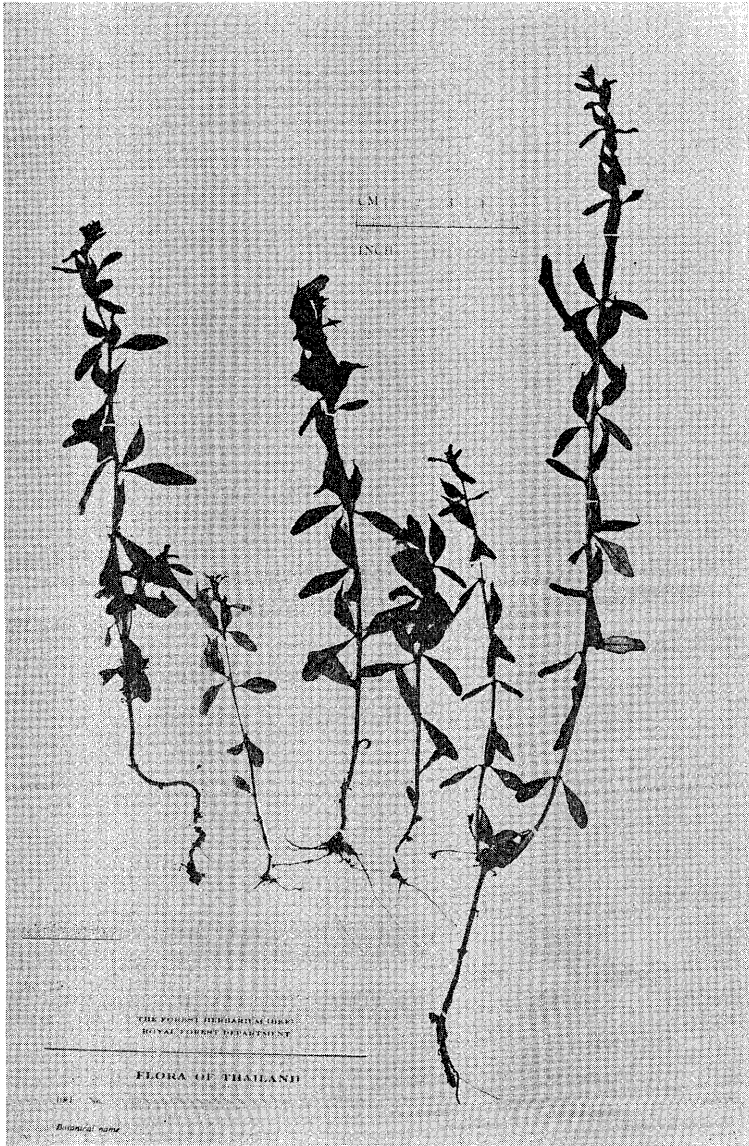 CM
INCH
THE FOREST HERBARIUM (BKF)
ROYAL FOREST DEPARTMENT
FLORA OF THAILAND
Botanical name